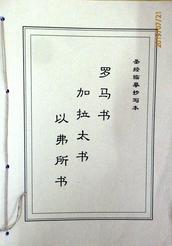 2019/07/21
圣经临摹抄写本
罗马书
加拉太书
以弗所书